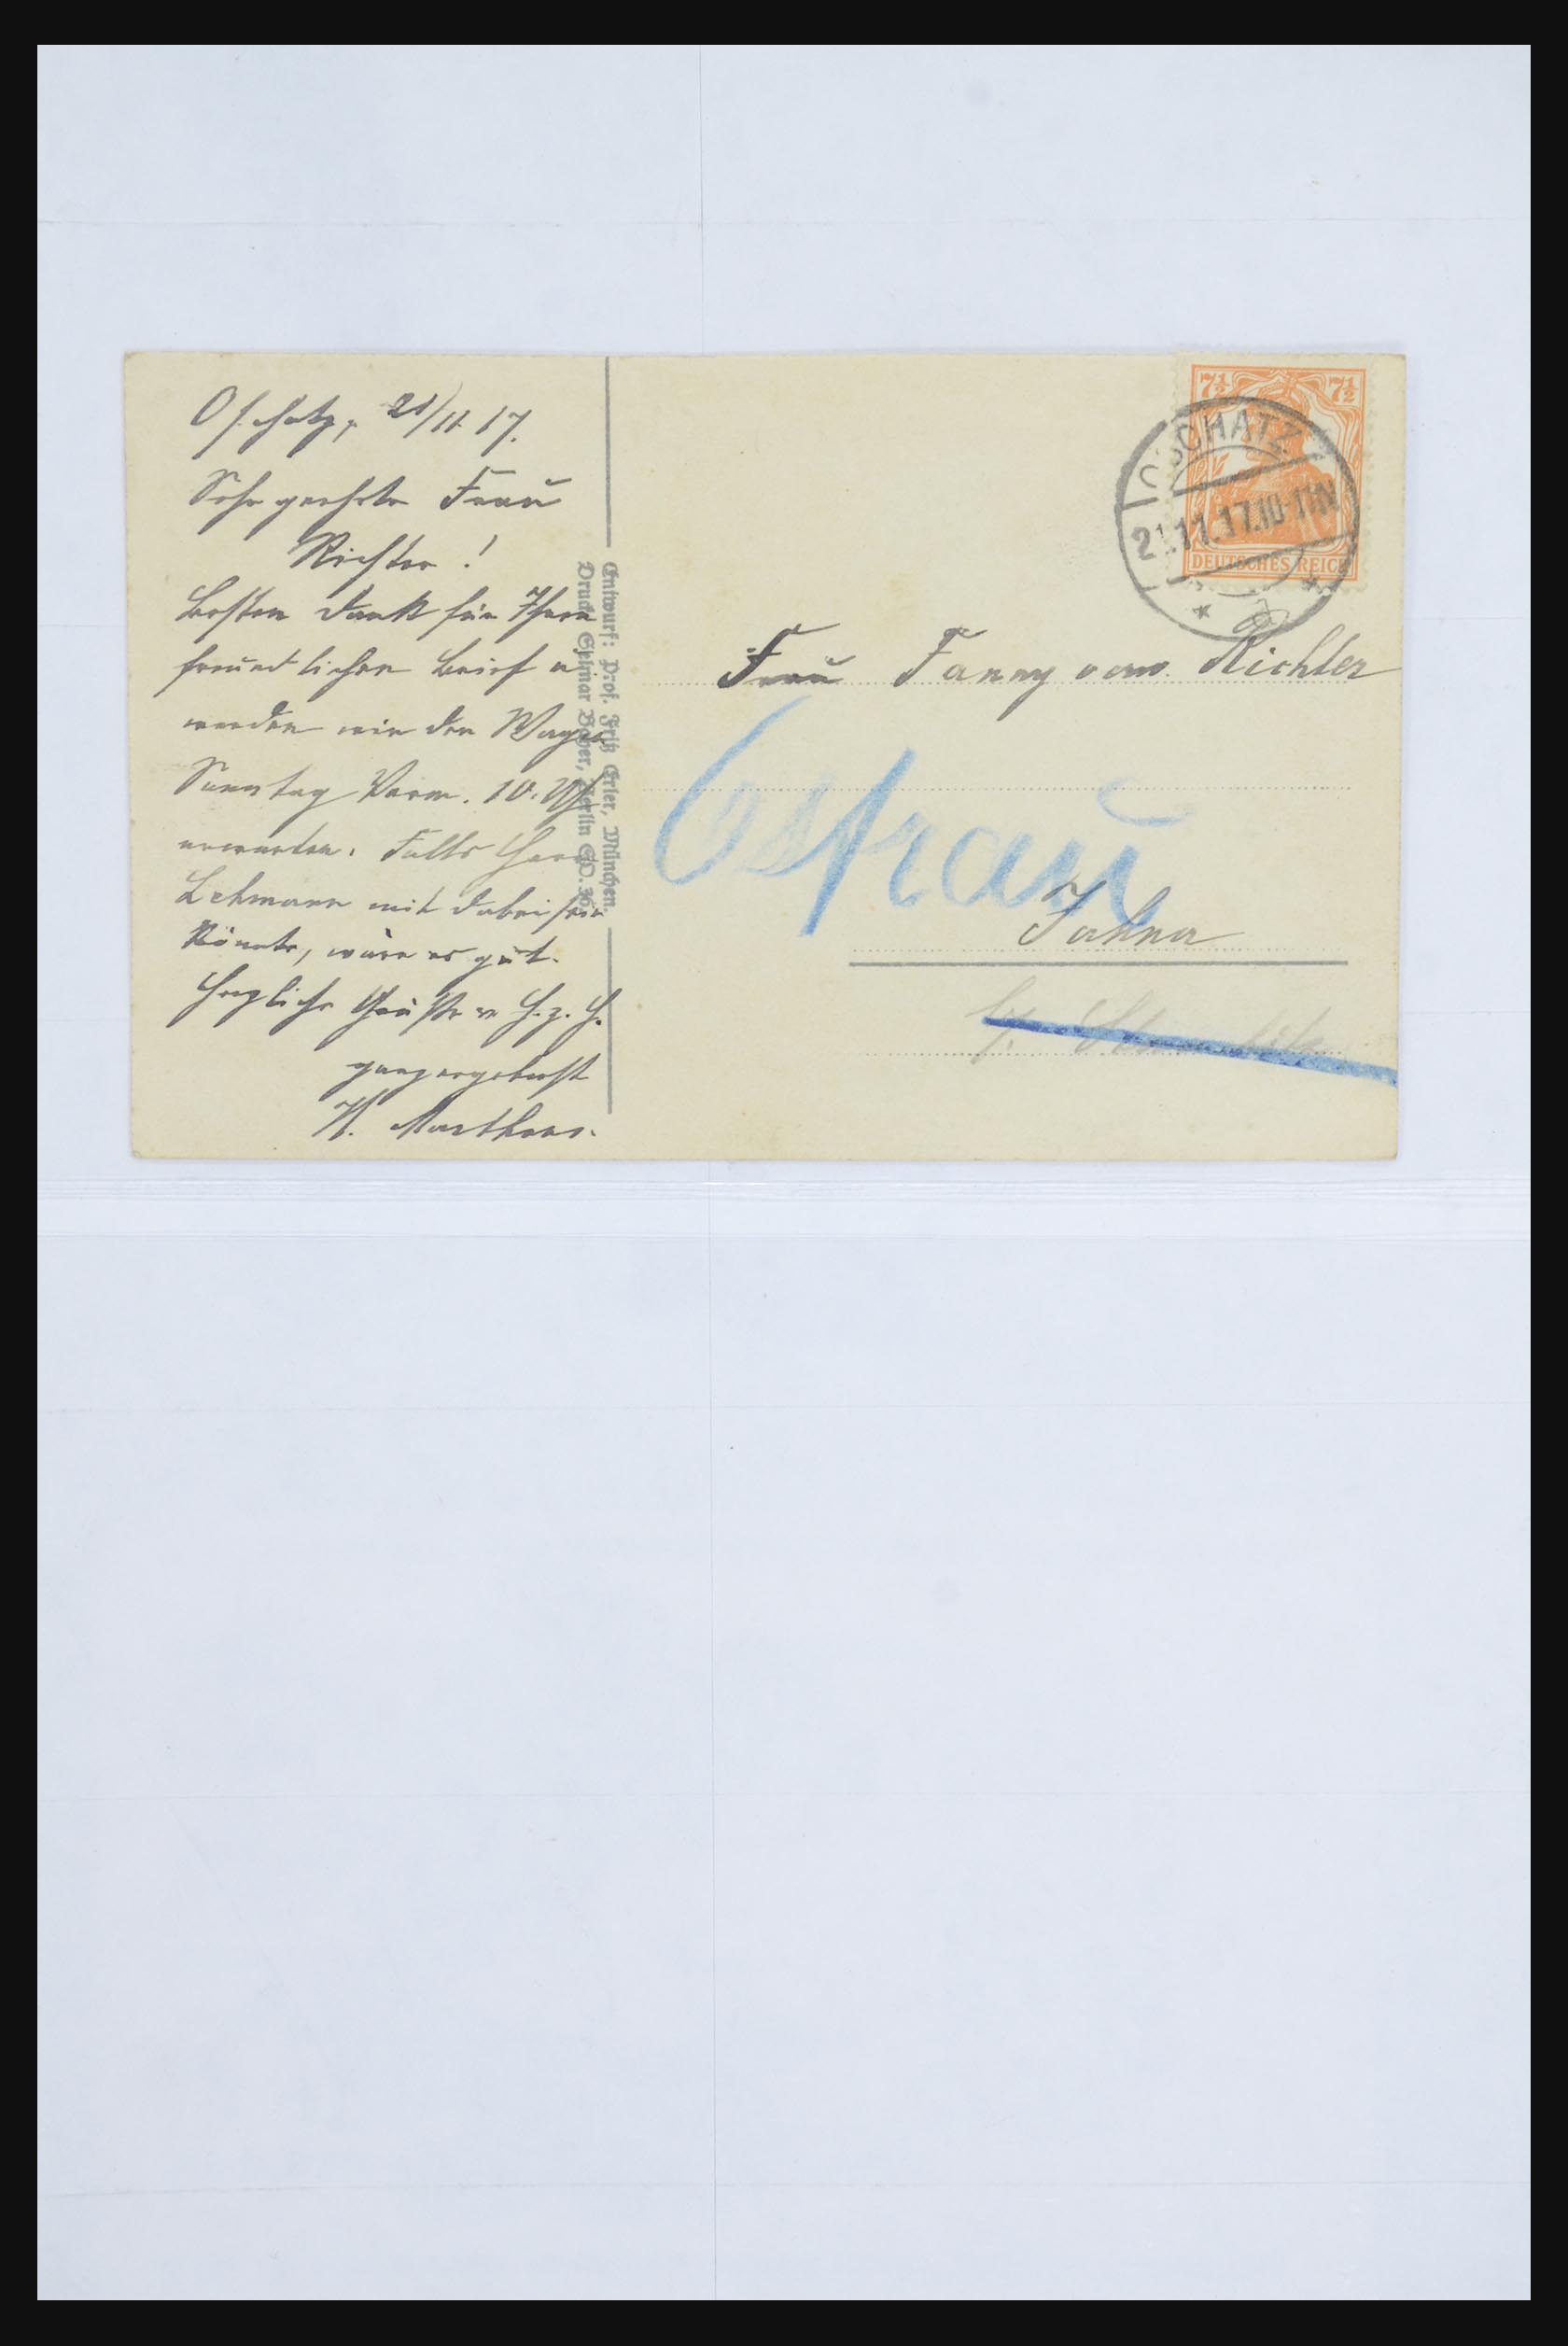 Oschatz, 21/11. 17.
Sehr geehrte Frau
Richter!
Besten Dank für Ihren
freundlichen Brief u
werden wir den Wagen
Sonntag Vorm. 10. Uhr
erwarten. Falls Herr
Lehmann mit dabei sein
könnte, wäre es gut.
Herzliche Grüße v. H. z. H.
ganz ergebenst
Entwurf: Prof. Fritz Erler, München.
Druck: Selmar Bayer, Berlin SO. 36.
7½ 7½
DEUTSCHES REICH
OSCHATZ
21.11.17.10-11N
Frau Fanny verw. Richter
Ostrau
Jahna
b/.